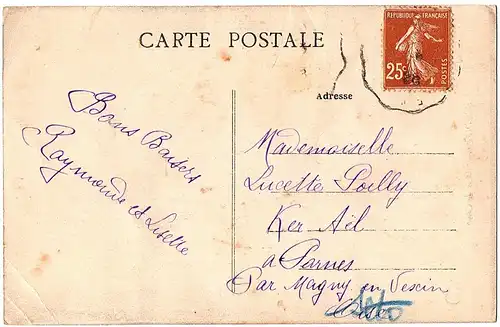 CARTE POSTALE
REPUBLIQUE FRANÇAISE
25c
POSTES
Adresse
Bons Baisers
Raymonde et Lisette
Mademoiselle
Lucette Poilly
Ker Aël
à Parnes
Par Magny en Vexin
Oise